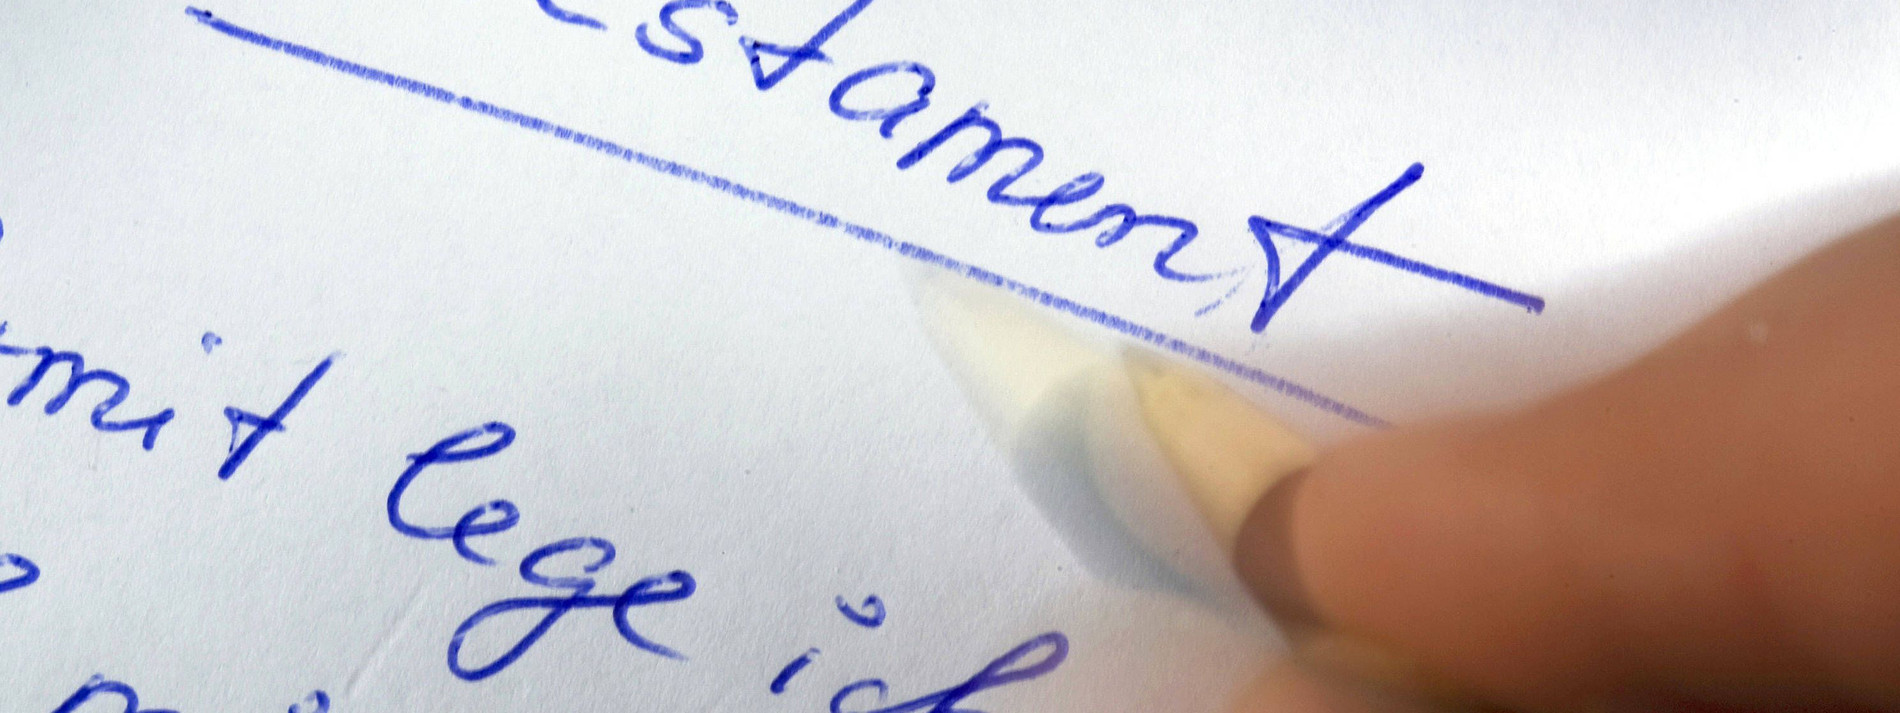 estament
mit lege ich